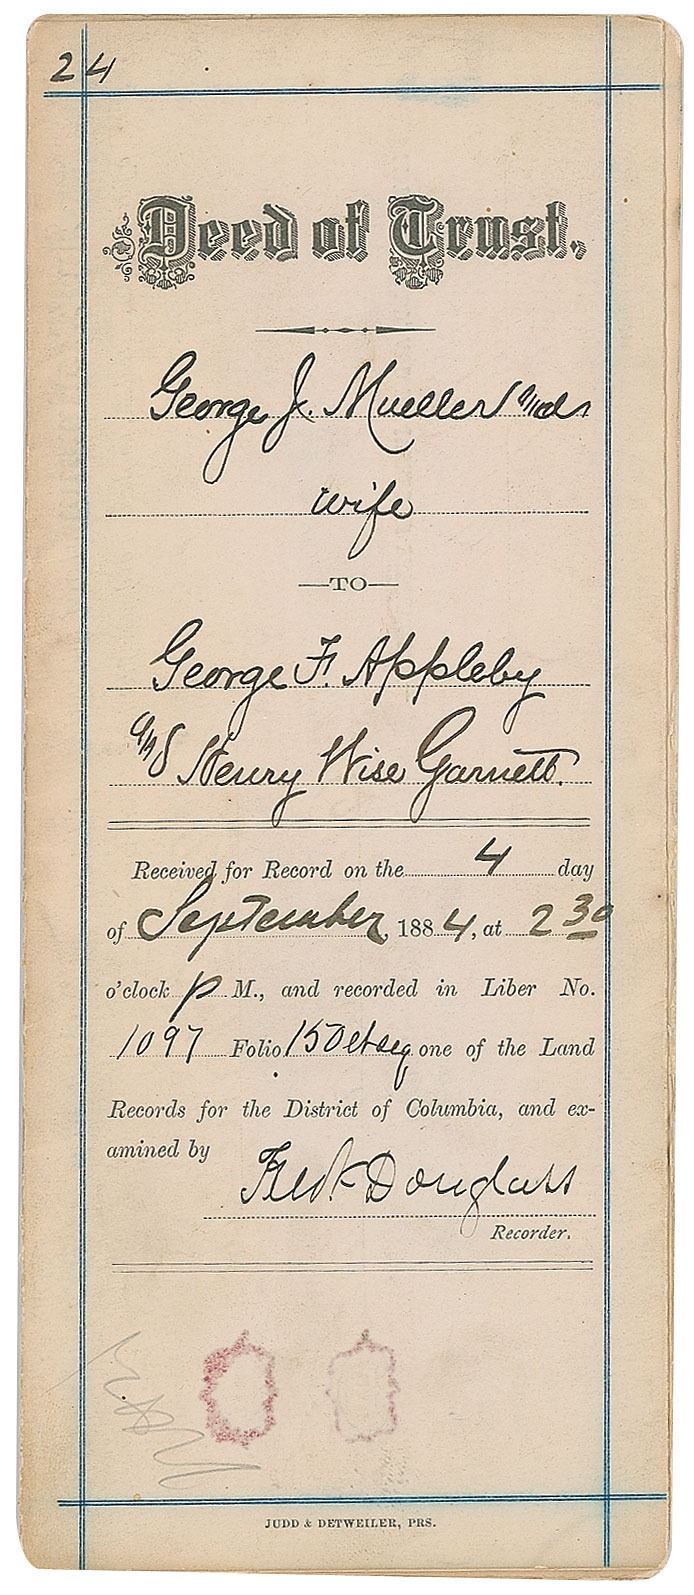 24
Deed of Trust.
George J. Mueller and
wife
—TO—
George F. Appleby
and Henry Wise Garnett.
Received for Record on the 4 day
of September, 1884, at 2 30
o'clock p M., and recorded in Liber No.
1097 Folio 150 et seq one of the Land
Records for the District of Columbia, and ex-
amined by
Fredk Douglass
Recorder.
JUDD & DETWEILER, PRS.